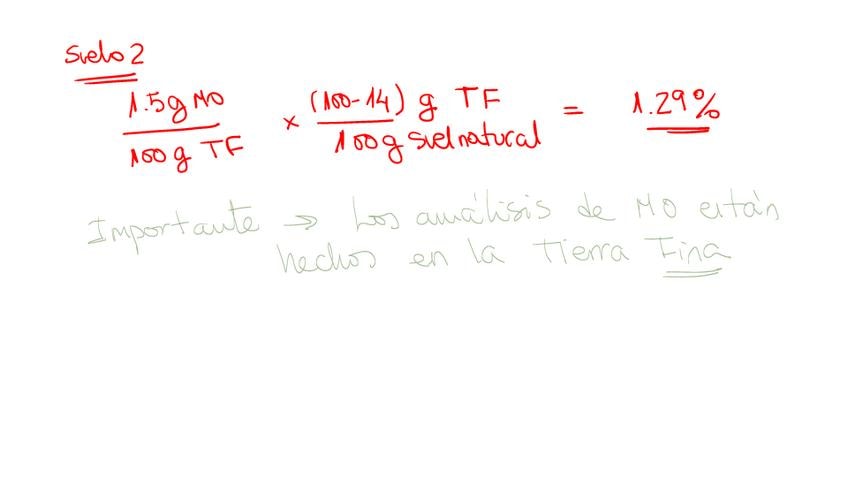 Suelo 2
1.5g MO / 100 g TF × (100-14) g TF / 100g suel natural = 1.29%
Importante → Los análisis de MO están
hechos en la Tierra Fina